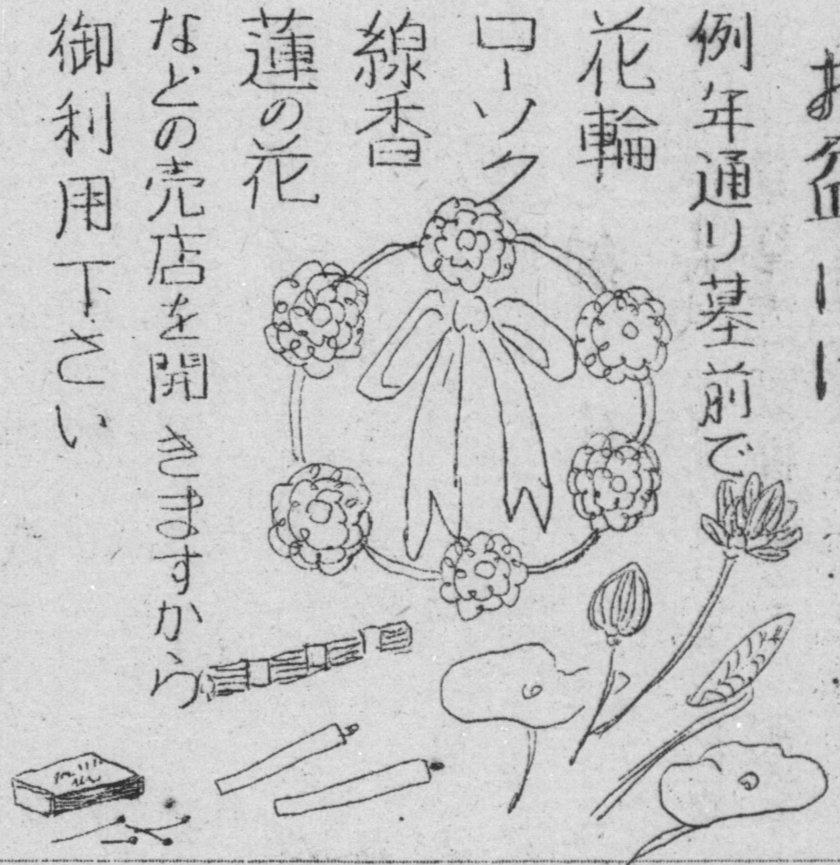 お盆に
例年通り墓前で
花輪
ローソク
線香
蓮の花
などの売店を開きますから
御利用下さい